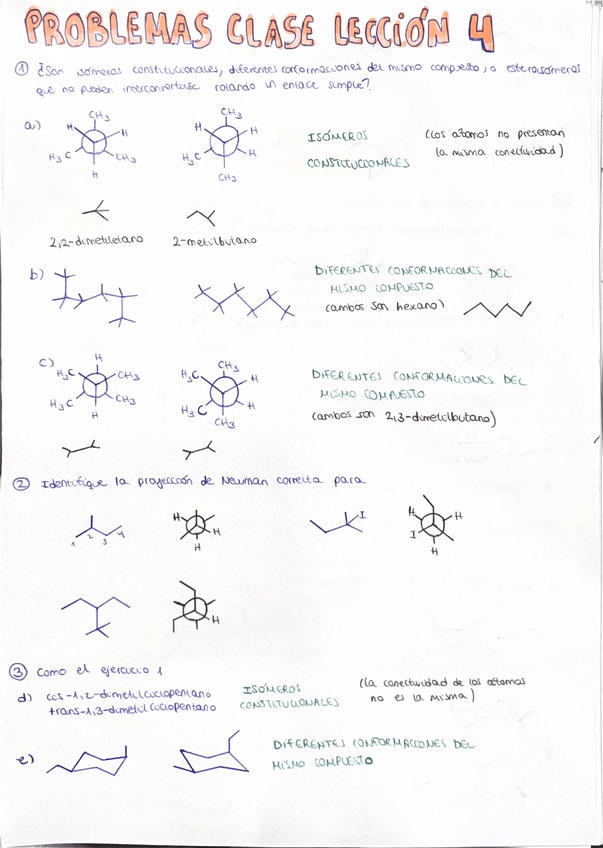 PROBLEMAS CLASE LECCIÓN 4
① ¿Son isómeros constitucionales, diferentes conformaciones del mismo compuesto, o estereoisómeros
que no pueden interconvertirse rotando un enlace simple?
a)
CH₃
H
H
H₃C
CH₃
H
CH₃
H
H
H₃C
H
CH₃
ISÓMEROS
CONSTITUCIONALES
(Los átomos no presentan
la misma conectividad)
2,2-dimetiletano
2-metilbutano
b)
DIFERENTES CONFORMACIONES DEL
MISMO COMPUESTO
(ambos son hexano)
c)
H
H₃C
CH₃
H₃C
CH₃
H
CH₃
H₃C
H
H₃C
H
CH₃
DIFERENTES CONFORMACIONES DEL
MISMO COMPUESTO
(ambos son 2,3-dimetilbutano)
② Identifique la proyección de Newman correcta para
1 2 3 4
H
H
H
I
H
H
I
H
H
③ Como el ejercicio 1
d) cis-1,2-dimetilciclopentano
trans-1,3-dimetilciclopentano
ISÓMEROS
CONSTITUCIONALES
(La conectividad de los átomos
no es la misma)
e)
DIFERENTES CONFORMACIONES DEL
MISMO COMPUESTO